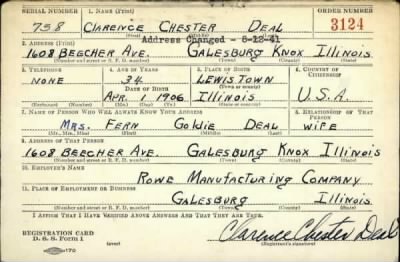 SERIAL NUMBER 1. NAME (Print) ORDER NUMBER
758 CLARENCE CHESTER DEAL 3124
(First) (Middle) (Last)
Address Changed - 6-12-41
2. ADDRESS (Print)
1608 BEECHER AVE. GALESBURG KNOX ILLINOIS
(Number and street or R. F. D. number) (Town) (County) (State)
3. TELEPHONE 4. AGE IN YEARS 5. PLACE OF BIRTH 6. COUNTRY OF CITIZENSHIP
NONE 34 LEWISTOWN
DATE OF BIRTH (Town or county)
APR. 1 1906 ILLINOIS U.S.A.
(Mo.) (Day) (Yr.) (State or country)
7. NAME OF PERSON WHO WILL ALWAYS KNOW YOUR ADDRESS 8. RELATIONSHIP OF THAT PERSON
MRS. FERN GOLDIE DEAL WIFE
(Mr., Mrs., Miss) (First) (Middle) (Last)
9. ADDRESS OF THAT PERSON
1608 BEECHER AVE. GALESBURG KNOX ILLINOIS
(Number and street or R. F. D. number) (Town) (County) (State)
10. EMPLOYER'S NAME
ROWE MANUFACTURING COMPANY
11. PLACE OF EMPLOYMENT OR BUSINESS
GALESBURG ILLINOIS
(Number and street or R. F. D. number) (Town) (County) (State)
I AFFIRM THAT I HAVE VERIFIED ABOVE ANSWERS AND THAT THEY ARE TRUE.
REGISTRATION CARD
D. S. S. Form 1 (over) Clarence Chester Deal
(Registrant's signature)